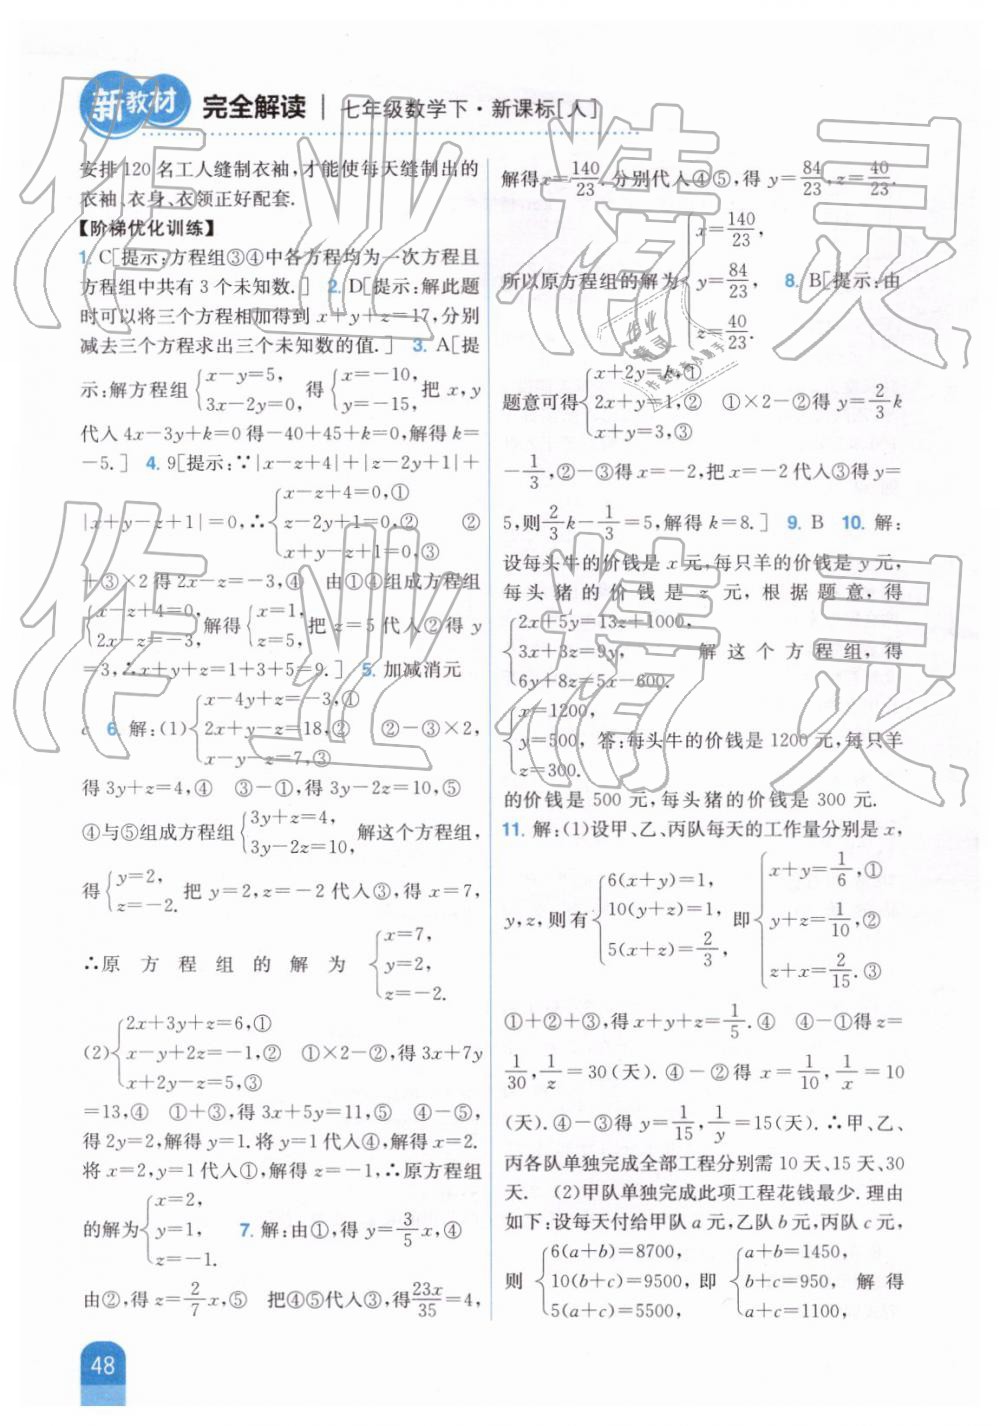 新教材 完全解读 | 七年级数学下·新课标[人]
安排120名工人缝制衣袖,才能使每天缝制出的
衣袖、衣身、衣领正好配套.
【阶梯优化训练】
1. C[提示:方程组③④中各方程均为一次方程且
方程组中共有3个未知数.] 2. D[提示:解此题
时可以将三个方程相加得到x+y+z=17,分别
减去三个方程求出三个未知数的值.] 3. A[提
示:解方程组{x-y=5, 3x-2y=0, 得{x=-10, y=-15, 把x,y
代入4x-3y+k=0得-40+45+k=0,解得k=
-5.] 4. 9[提示:∵|x-z+4|+|z-2y+1|+
|x+y-z+1|=0,∴{x-z+4=0,① z-2y+1=0,② x+y-z+1=0,③ ②
+③×2得2x-z=-3,④ 由①④组成方程组
{x-z+4=0, 2x-z=-3, 解得{x=1, z=5, 把z=5代入②得y
=3,∴x+y+z=1+3+5=9.] 5. 加减消元
c 6. 解:(1){x-4y+z=-3,① 2x+y-z=18,② x-y-z=7,③ ②-③×2,
得3y+z=4,④ ③-①,得3y-2z=10,⑤
④与⑤组成方程组{3y+z=4, 3y-2z=10, 解这个方程组,
得{y=2, z=-2. 把y=2,z=-2代入③,得x=7,
∴原方程组的解为{x=7, y=2, z=-2.
(2){2x+3y+z=6,① x-y+2z=-1,② x+2y-z=5,③ ①×2-②,得3x+7y
=13,④ ①+③,得3x+5y=11,⑤ ④-⑤,
得2y=2,解得y=1.将y=1代入④,解得x=2.
将x=2,y=1代入①,得z=-1,∴原方程组
的解为{x=2, y=1, z=-1. 7. 解:由①,得y=3/5x,④
由②,得z=2/7x,⑤ 把④⑤代入③,得23x/35=4,
解得x=140/23.分别代入④⑤,得y=84/23,z=40/23.
所以原方程组的解为{x=140/23, y=84/23, z=40/23. 8. B[提示:由
题意可得{x+2y=k,① 2x+y=1,② x+y=3,③ ①×2-②得y=2/3k
-1/3,②-③得x=-2,把x=-2代入③得y=
5,则2/3k-1/3=5,解得k=8.] 9. B 10. 解:
设每头牛的价钱是x元,每只羊的价钱是y元,
每头猪的价钱是z元,根据题意,得
{2x+5y=13z+1000, 3x+3z=9y, 6y+8z=5x-600. 解这个方程组,得
{x=1200, y=500, z=300. 答:每头牛的价钱是1200元,每只羊
的价钱是500元,每头猪的价钱是300元.
11. 解:(1)设甲、乙、丙队每天的工作量分别是x,
y,z,则有{6(x+y)=1, 10(y+z)=1, 5(x+z)=2/3, 即{x+y=1/6,① y+z=1/10,② z+x=2/15.③
①+②+③,得x+y+z=1/5.④ ④-①得z=
1/30,1/z=30(天).④-②得x=1/10,1/x=10
(天).④-③得y=1/15,1/y=15(天).∴甲、乙、
丙各队单独完成全部工程分别需10天、15天、30
天. (2)甲队单独完成此项工程花钱最少.理由
如下:设每天付给甲队a元,乙队b元,丙队c元,
则{6(a+b)=8700, 10(b+c)=9500, 5(a+c)=5500, 即{a+b=1450, b+c=950, a+c=1100, 解得
48
作业精灵
作业精灵